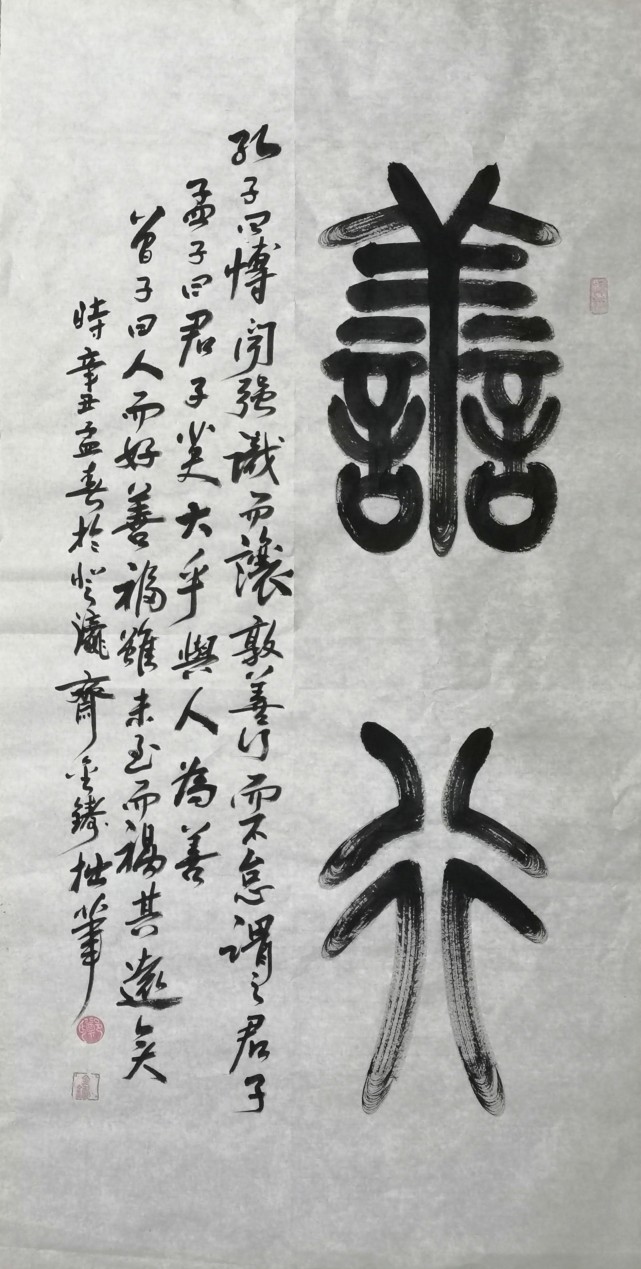 善行
孔子曰博闻强識而讓敦善行而不怠謂之君子
孟子曰君子莫大乎與人為善
曾子曰人而好善福雖未至而禍其遠矣
時辛丑孟春於瀧齋金鑄拙筆